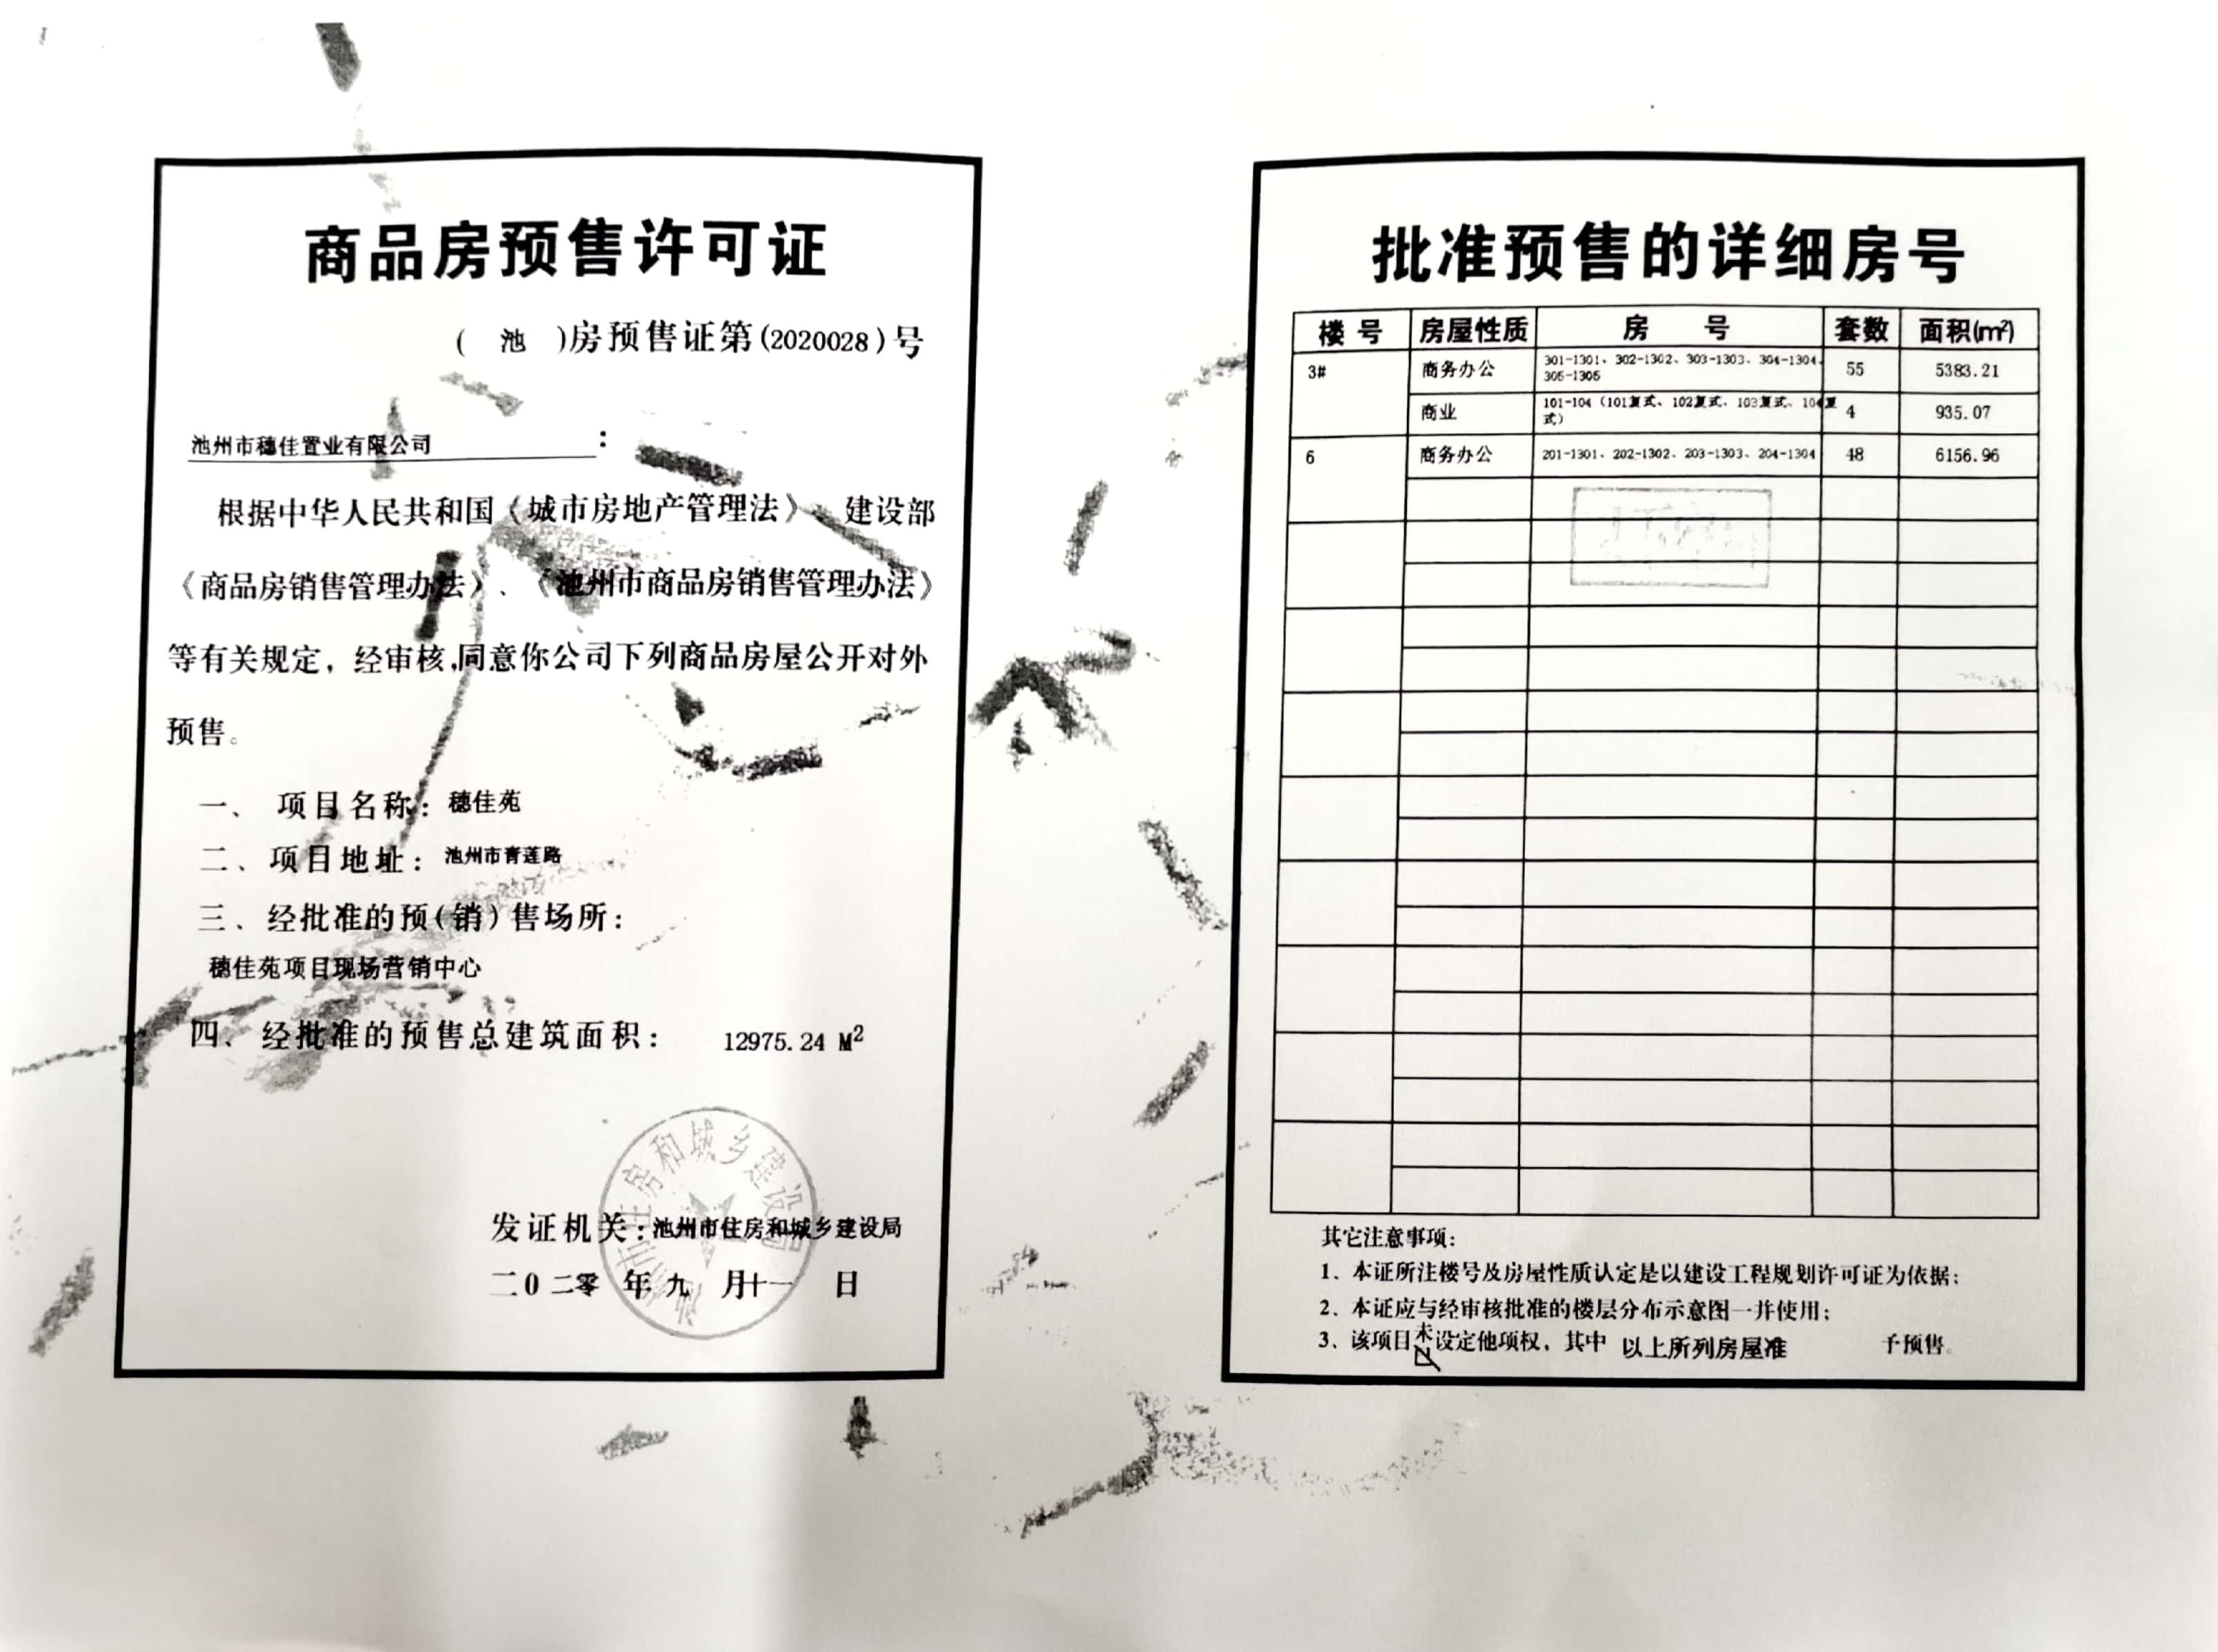 商品房预售许可证
( 池 )房预售证第(2020028)号
池州市穗佳置业有限公司:
根据中华人民共和国《城市房地产管理法》、建设部
《商品房销售管理办法》、《池州市商品房销售管理办法》
等有关规定,经审核,同意你公司下列商品房屋公开对外
预售。
一、项目名称:穗佳苑
二、项目地址:池州市青莲路
三、经批准的预(销)售场所:
穗佳苑项目现场营销中心
四、经批准的预售总建筑面积: 12975.24 M²
发证机关:池州市住房和城乡建设局
二0二零 年九 月十一 日
池州市住房和城乡建设局
批准预售的详细房号
楼 号 房屋性质 房 号 套数 面积(m²)
3# 商务办公 301-1301、302-1302、303-1303、304-1304、 55 5383.21
305-1305
商业 101-104(101复式、102复式、103复式、104复 4 935.07
式)
6 商务办公 201-1301、202-1302、203-1303、204-1304 48 6156.96
其它注意事项:
1、本证所注楼号及房屋性质认定是以建设工程规划许可证为依据;
2、本证应与经审核批准的楼层分布示意图一并使用;
3、该项目未设定他项权,其中 以上所列房屋准 予预售。